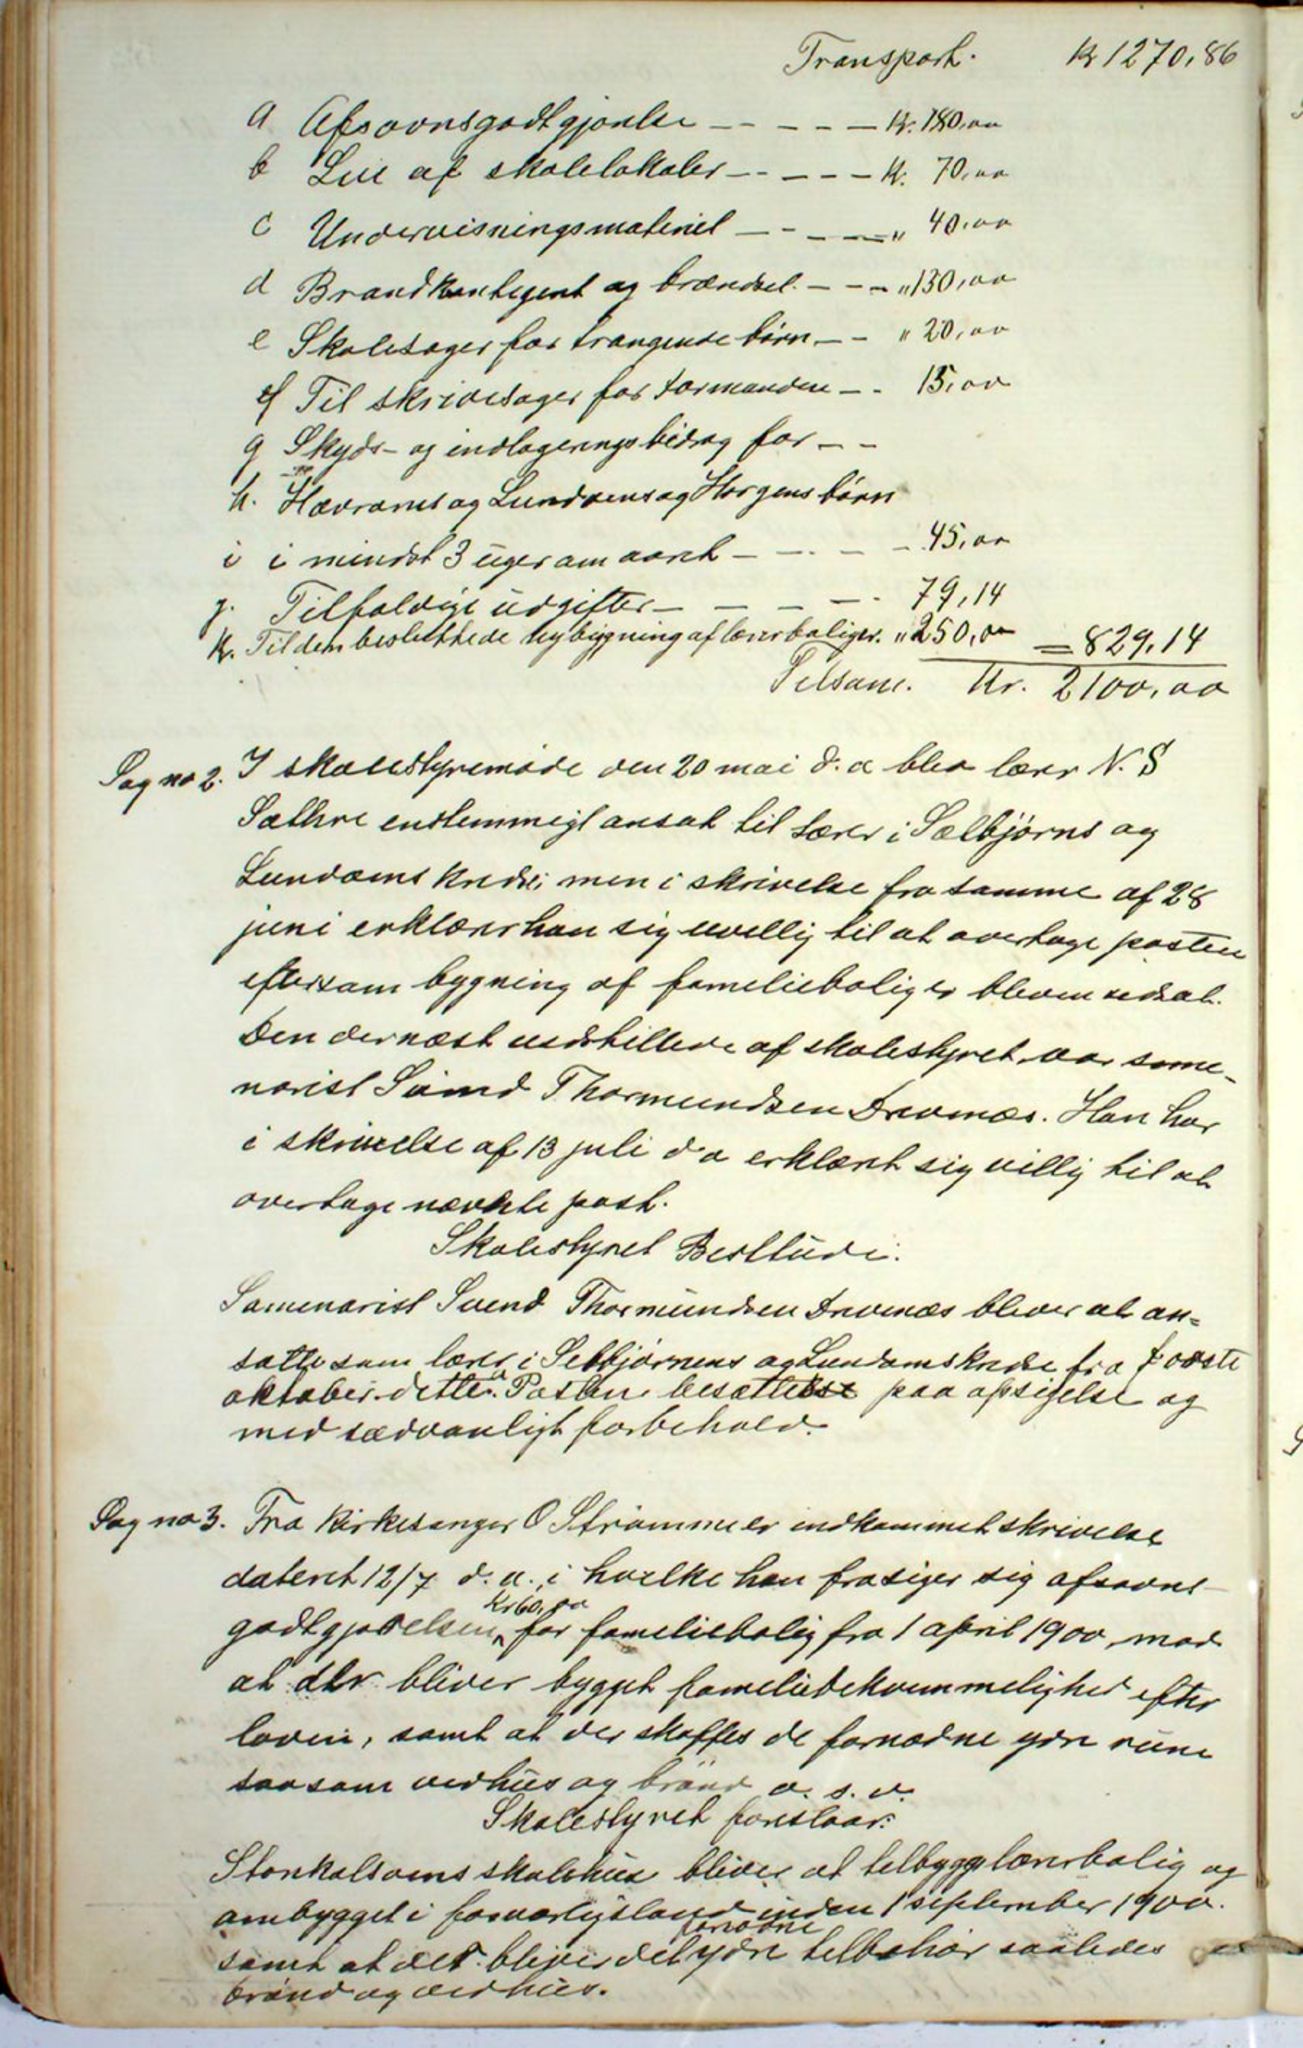 Transport. Kr 1270,86
a Afsavnsgodtgjørelse - - - - - Kr. 180,00
b Leie af skolelokaler - - - - - Kr. 70,00
c Undervisningsmateriel - - - - - " 40,00
d Brandkontegent og brændsel. - - - " 130,00
e Skolesager for trængende børn - - " 20,00
f Til skrivesager for formanden - - 15,00
g Skyds- og indlogeringsbidrag for - -
h. Hævrøens og Lundøens og Horgens børn
i i mindst 3 uger om aaret - - - - 45,00
j. Tilfældige udgifter - - - - - 79,14
k. Til den besluttede nybygning af lærerboliger. " 250,00 = 829,14
Tilsam. Kr. 2100,00
Sag no 2. I skolestyremøde den 20 mai d. a blev lærer N. S
Sæthre enstemmigt ansat til lærer i Sælbjørns og
Lundøens kreds; men i skrivelse fra samme af 28
juni erklærer han sig uvellig til at overtage posten
eftersom bygning af familieboliger bleven udsat.
Den dernæst indstillede af skolestyret var seme-
narist Svend Thormundsen Drevnæs. Han har
i skrivelse af 13 juli d a erklært sig villig til at
overtage nævnte post.
Skolestyret Besluttede:
Semenarist Svend Thormundsen Drevnæs bliver at an-
sætte som lærer i Selbjørnens og Lundøens kredse fra første
oktober dette a. Posten besættes paa opsigelse og
med sædvanligt forbehold.
Sag no 3. Fra Kirkesanger O Strømme er indkommet skrivelse
dateret 12/7 d. a. i hvilke han frasiger sig afsavns-
godtgjørelsen Kr 60,00 for familiebolig fra 1 april 1900, mod
at der bliver bygget familiebekvemmelighed efter
loven, samt at der skaffes de fornødne ydre rum
saasom vedhus og brønd o. s. v.
Skolestyret foreslaar:
Storkalsøens skolehus bliver at telbygge lærerbolig og
ombygget i forsvarligstand inden 1 september 1900.
samt at det bliver det fornødne ydre telbehør saaledes
brønd og vedhus.